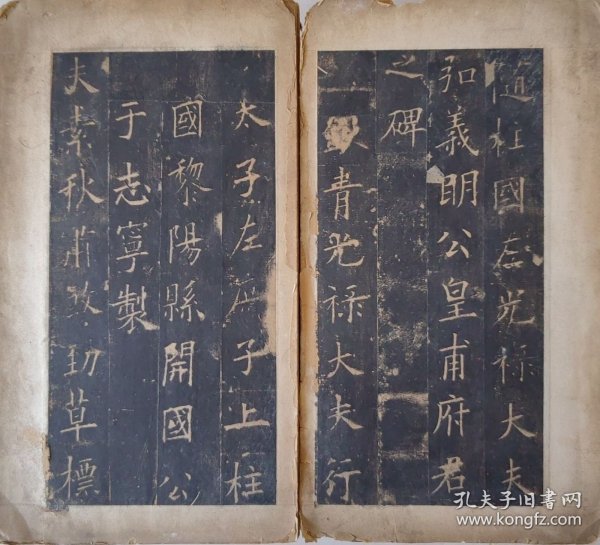 隨柱國左光祿大夫
弘義明公皇甫府君
之碑
銀青光祿大夫行
太子左庶子上柱
國黎陽縣開國公
于志寧製
夫素秋肅煞勁草標
孔夫子旧书网
www.kongfz.com